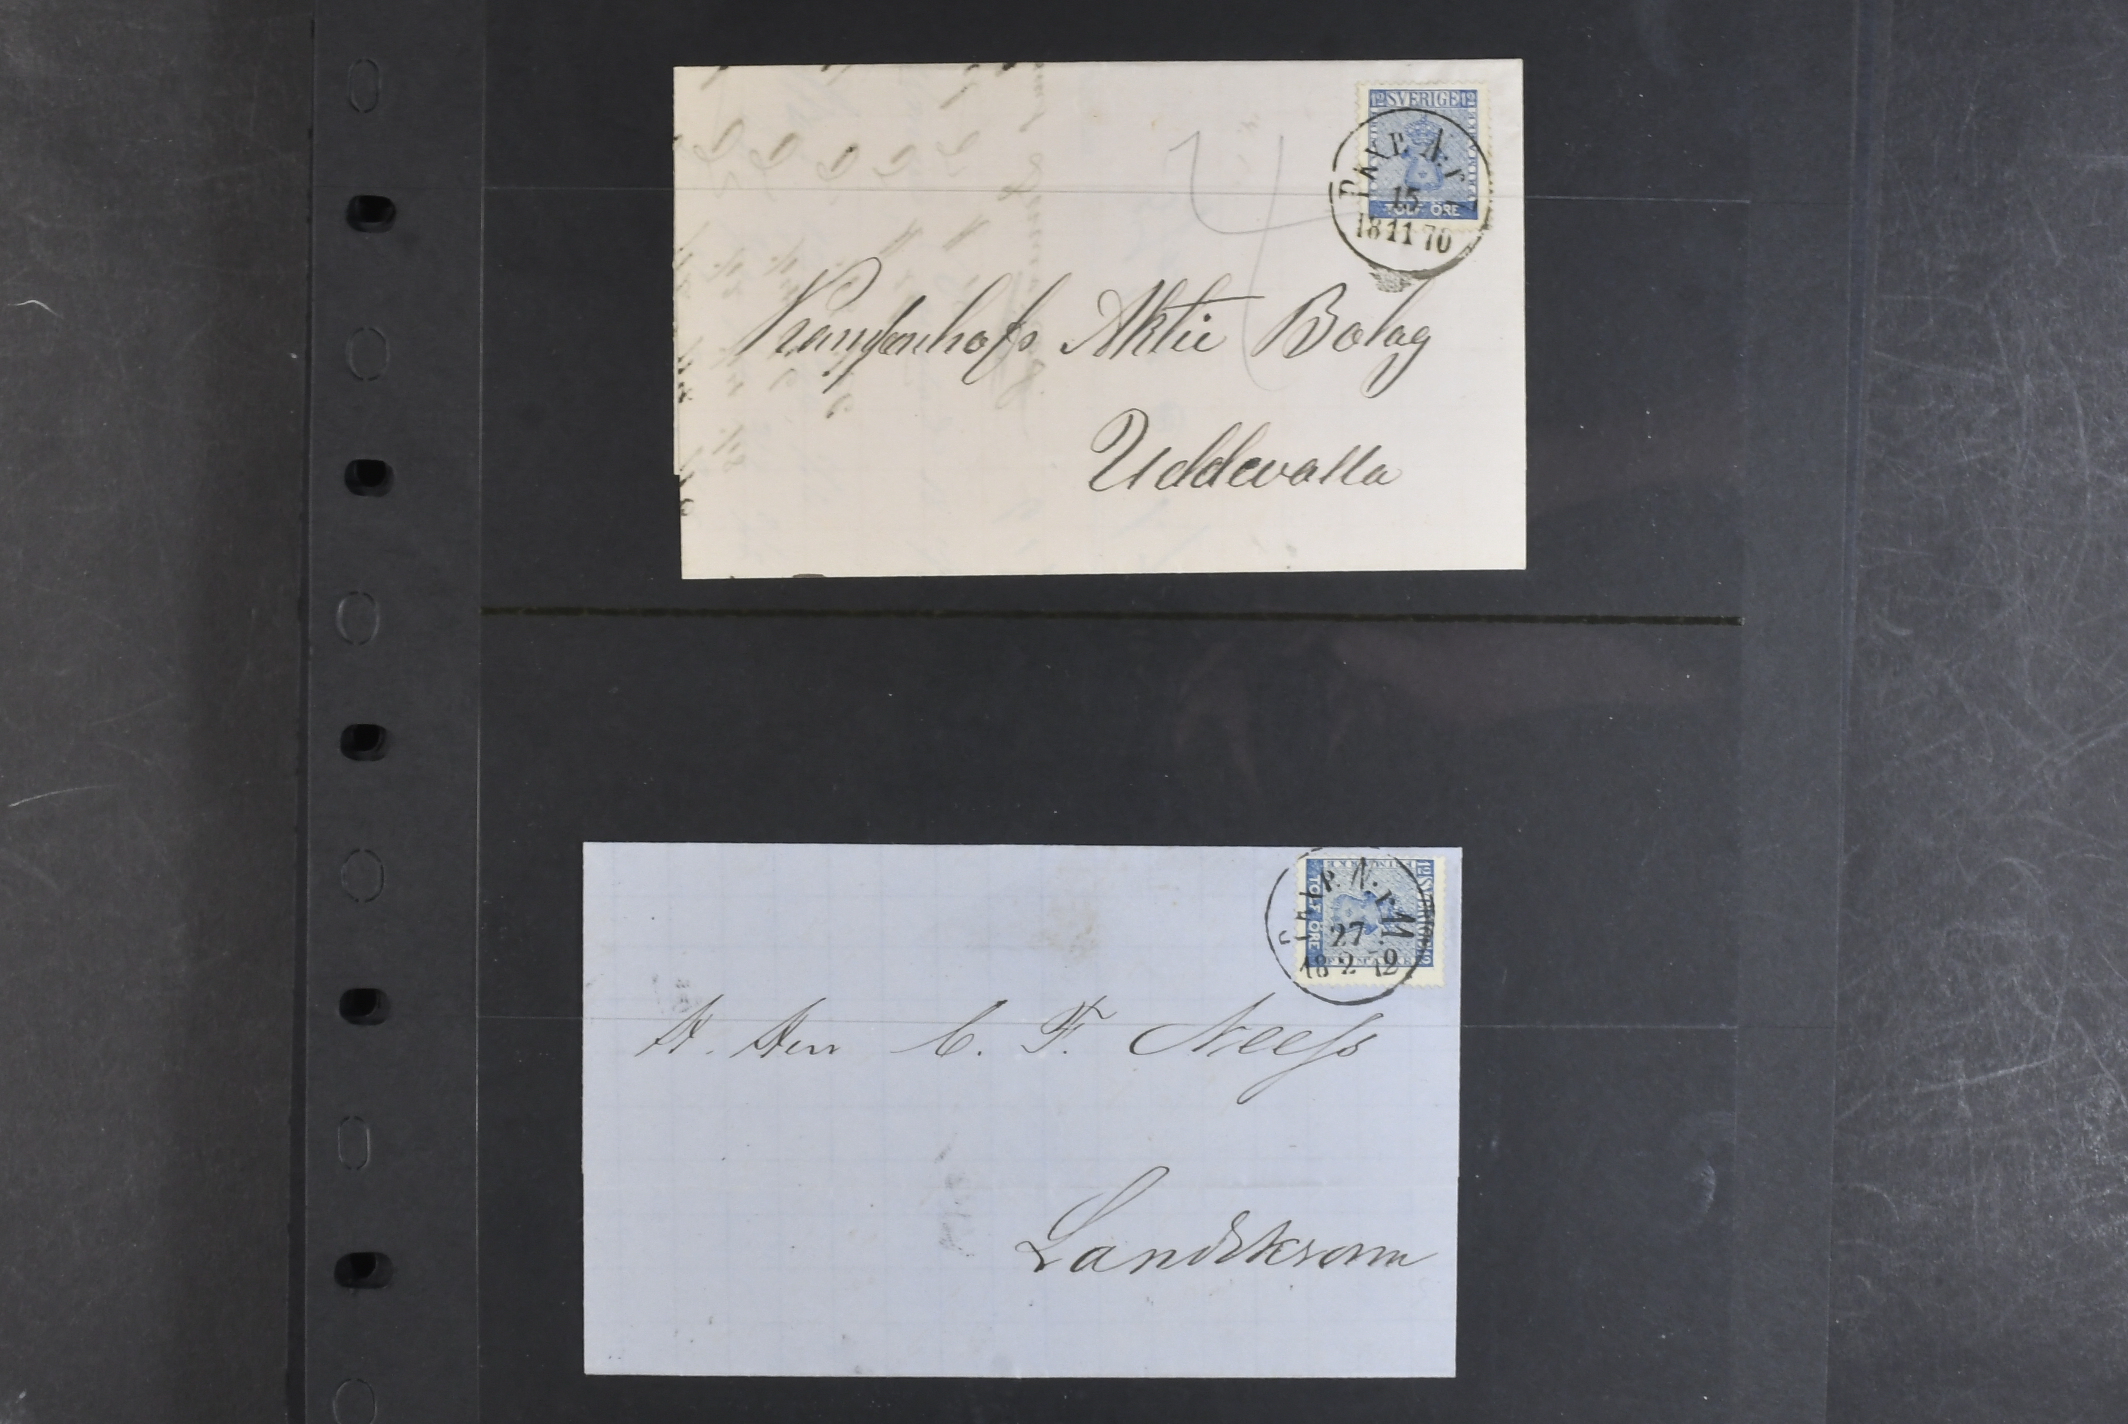 12 SVERIGE 12
PKXP. N:r
15
18 11 70
TOLF ÖRE
Kampenhofs Aktie Bolag
Uddevalla
12 SVERIGE 12
FRIMÄRKE
TOLF ÖRE
PKXP. N:r 11
27
18 2 72
H. Herr C. F. Neess
Landskrona